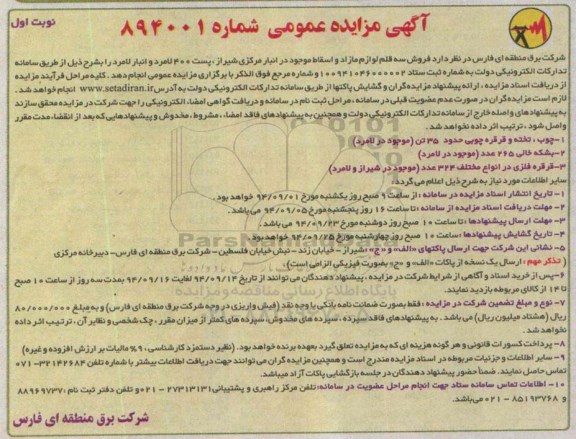 نوبت اول
آگهی مزایده عمومی شماره ۸۹۴۰۰۱
شرکت برق منطقه ای فارس در نظر دارد فروش سه قلم لوازم مازاد و اسقاط موجود در انبار مرکزی شیراز ، پست ۴۰۰ لامرد و انبار لامرد را بشرح ذیل از طریق سامانه
تدارکات الکترونیکی دولت به شماره ثبت ستاد ۱۰۰۹۴۱۰۴۶۰۰۰۰۰۲ و شماره مرجع فوق الذکر با برگزاری مزایده عمومی انجام دهد . کلیه مراحل فرآیند مزایده
از دریافت اسناد مزایده ، ارائه پیشنهاد مزایده گران و گشایش پاکتها از طریق سامانه تدارکات الکترونیکی دولت به آدرس www.setadiran.ir انجام خواهد شد .
لازم است مزایده گران در صورت عدم عضویت قبلی در سامانه ، مراحل ثبت نام در سامانه و دریافت گواهی امضاء الکترونیکی را جهت شرکت در مزایده محقق سازند
به پیشنهادهای واصله خارج از سامانه تدارکات الکترونیکی دولت و همچنین به پیشنهادهای فاقد امضاء ، مشروط ، مخدوش و پیشنهادهایی که بعد از انقضاء مدت مقرر
واصل شود ، ترتیب اثر داده نخواهد شد .
۱-چوب ، تخته و قرقره چوبی حدود ۳۵ تن (موجود در لامرد)
۲-بشکه خالی ۲۶۵ عدد (موجود در لامرد)
۳-قرقره فلزی در انواع مختلف ۳۲۴ عدد (موجود در شیراز و لامرد)
سایر اطلاعات مورد نیاز به شرح ذیل اعلام می گردد:
۱- تاریخ انتشار اسناد مزایده در سامانه : از ساعت ۹ صبح روز یکشنبه مورخ ۹۴/۰۹/۰۱ خواهد بود .
۲- مهلت دریافت اسناد مزایده از سامانه : تا ساعت ۱۶ روز پنجشنبه مورخ ۹۴/۰۹/۰۵ می باشد .
۳- مهلت ارسال پیشنهادها : تا ساعت ۱۰ صبح روز دوشنبه مورخ ۹۴/۰۹/۲۳ می باشد .
۴- تاریخ گشایش پیشنهادها : ساعت ۱۰ صبح روز چهارشنبه مورخ ۹۴/۰۹/۲۵ خواهد بود .
۵- نشانی این شرکت جهت ارسال پاکتهای «الف» و «ج» : شیراز – خیابان زند – نبش خیابان فلسطین – شرکت برق منطقه ای فارس – دبیرخانه مرکزی
( تذکر مهم : ارسال یک نسخه از پاکات «الف» و «ج» بصورت فیزیکی الزامی است )
۶-پس از خرید اسناد و آگاهی از شرایط شرکت در مزایده ، پیشنهاد دهندگان می توانند از تاریخ ۹۴/۰۹/۱۴ لغایت ۹۴/۰۹/۱۶ بمدت سه روز از ساعت ۱۰ صبح
تا ۱۴ از کالاهای مربوطه بازدید نمایند.
۷- نوع و مبلغ تضمین شرکت در مزایده : فقط بصورت ضمانت نامه بانکی یا وجه نقد (فیش واریزی در وجه شرکت برق منطقه ای فارس) و به مبلغ ۸۰/۰۰۰/۰۰۰
ریال (هشتاد میلیون ریال) می باشد . به پیشنهادهای فاقد سپرده ، سپرده های مخدوش، سپرده های کمتر از میزان مقرر ، چک شخصی و نظایر آن ، ترتیب اثر داده
نخواهد شد.
۸- پرداخت کسورات قانونی و هر گونه هزینه ای که به مزایده تعلق گیرد بعهده برنده خواهد بود. (نظیر دستمزد کارشناسی ، ۹٪ مالیات بر ارزش افزوده و غیره)
۹- سایر اطلاعات و جزئیات مربوطه در اسناد مزایده مندرج است و همچنین مزایده گران می توانند جهت دریافت اطلاعات بیشتر با شماره تلفن ۳۲۱۴۲۶۸۴-۰۷۱
تماس حاصل نمایند. ضمناً حضور پیشنهاد دهندگان در جلسه بازگشایی پاکات آزاد میباشد.
۱۰- اطلاعات تماس سامانه ستاد جهت انجام مراحل عضویت در سامانه: تلفن مرکز راهبری و پشتیبانی ۲۷۳۱۳۱۳۱ – ۰۲۱ و تلفن دفتر ثبت نام : ۸۸۹۶۹۷۳۷
و ۸۵۱۹۳۷۶۸ – ۰۲۱ می باشد.
شرکت برق منطقه ای فارس